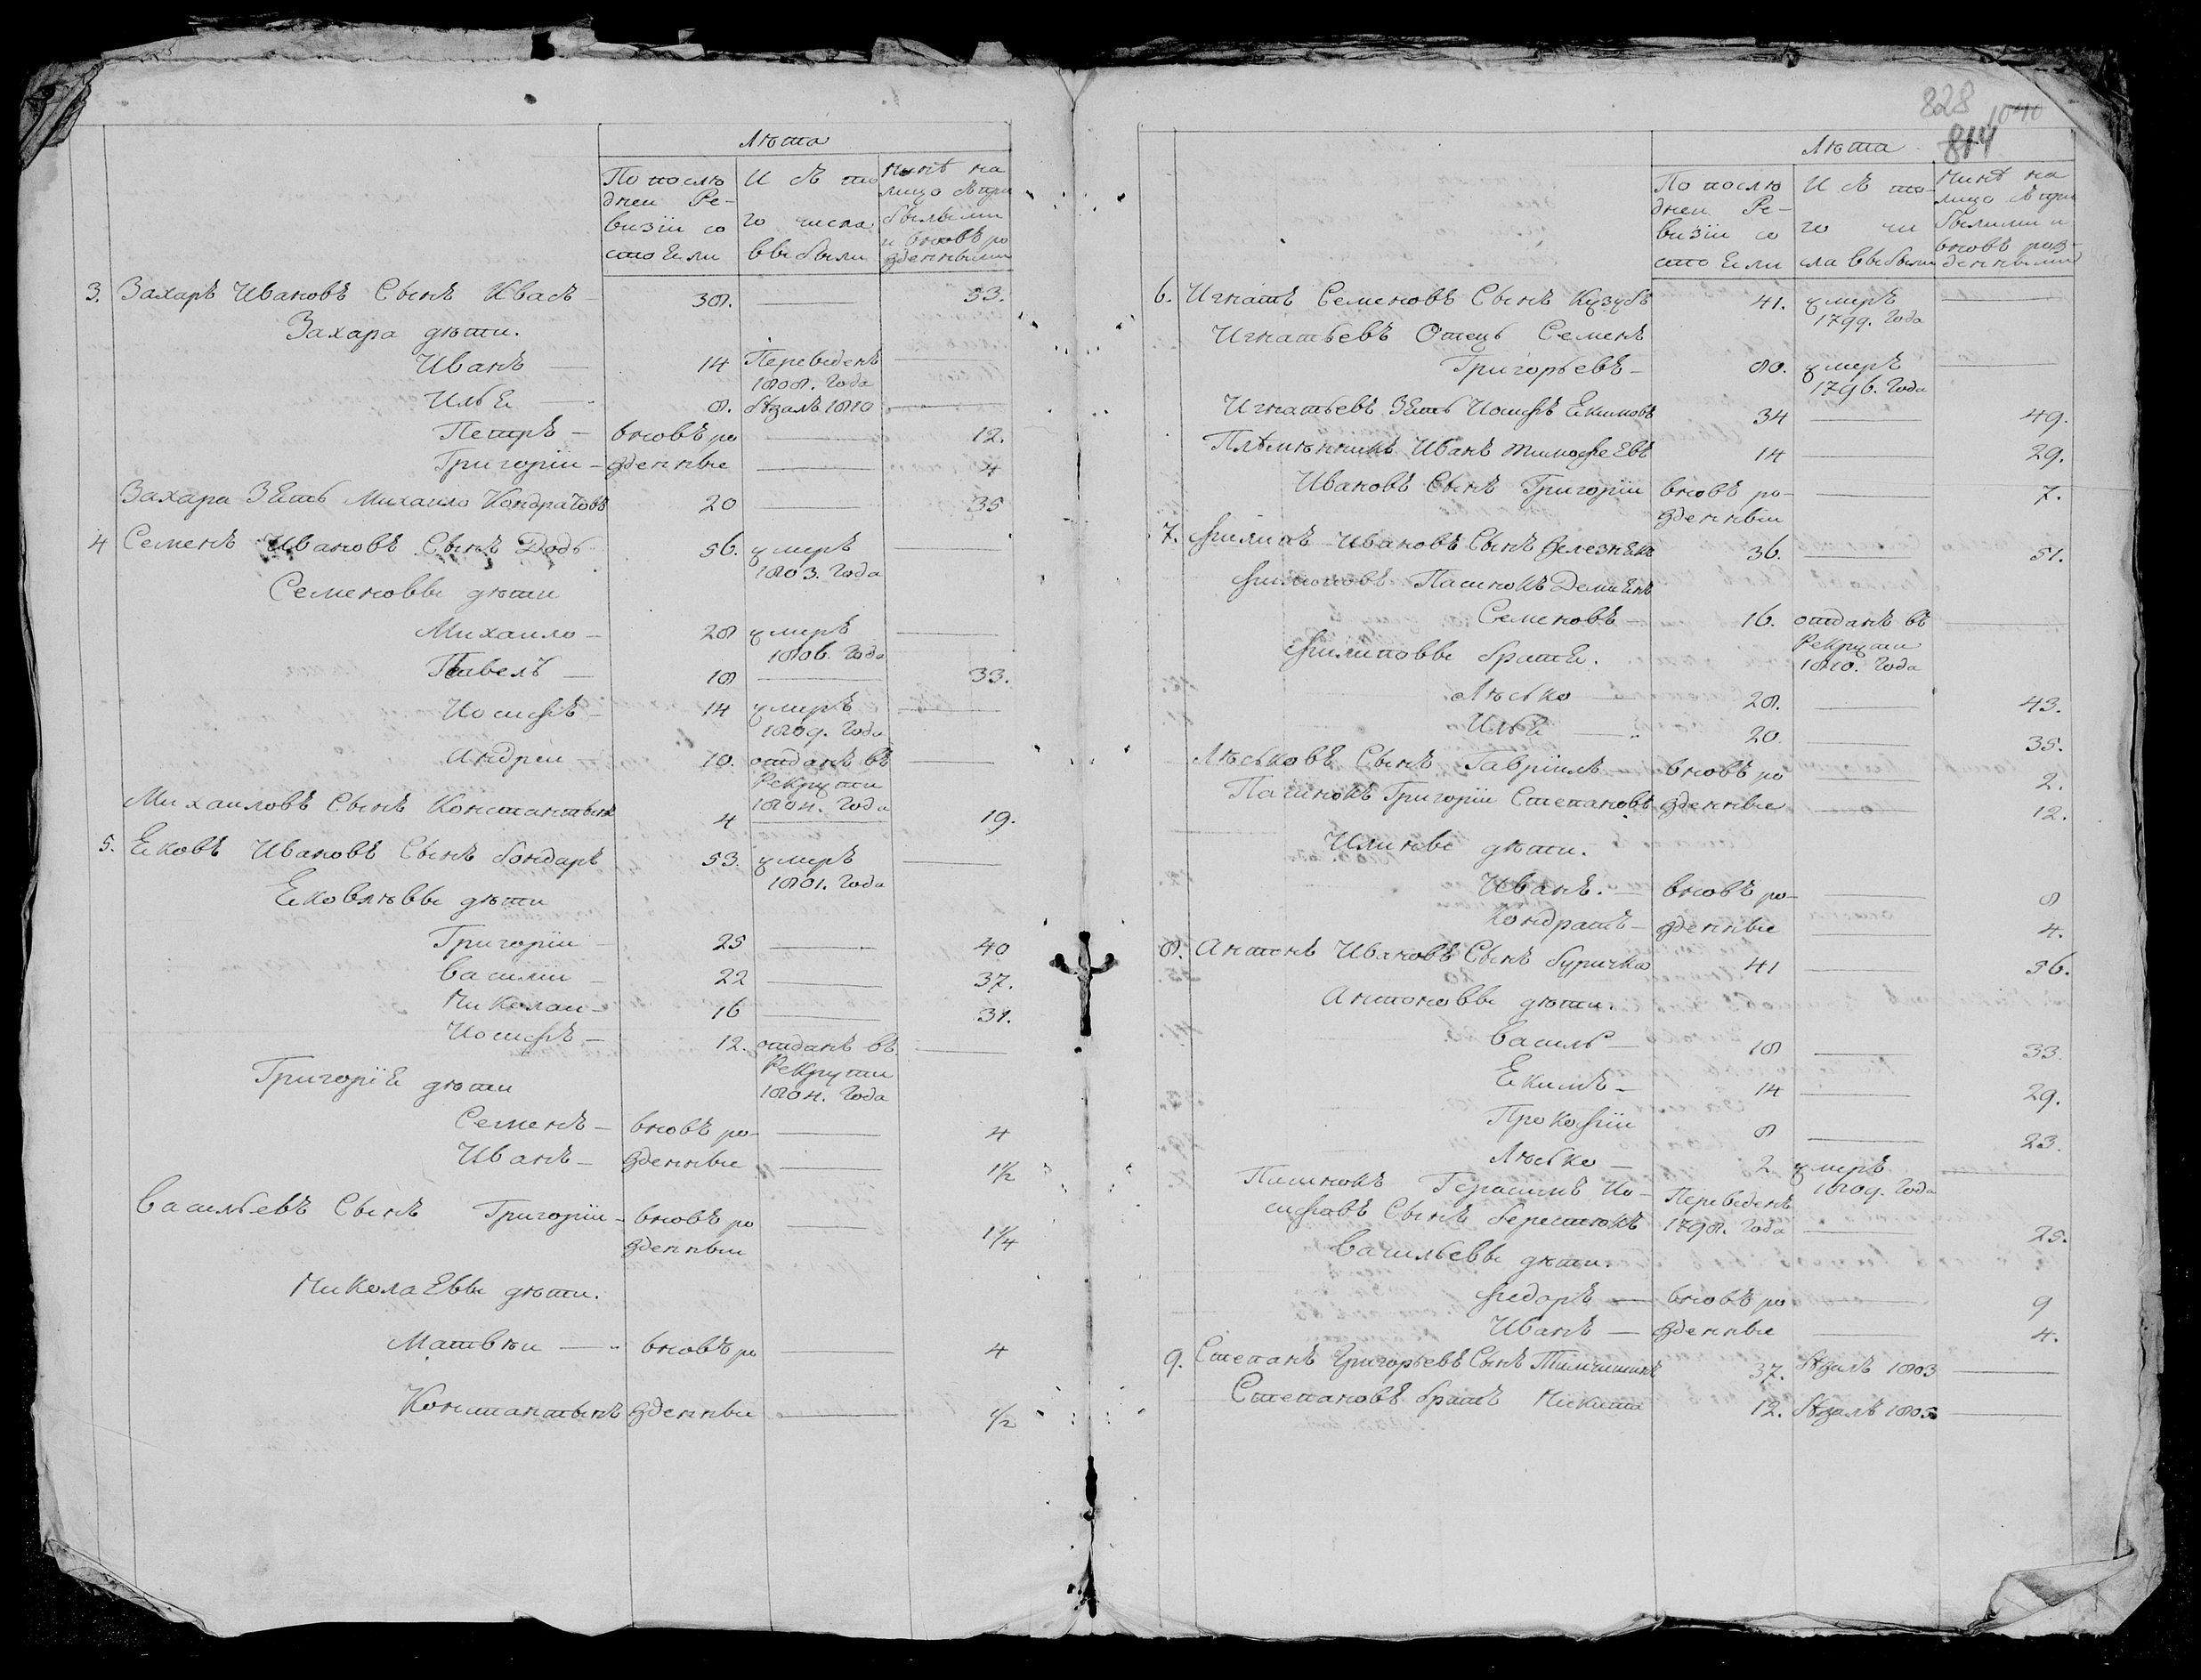 Лѣта
По послѣ
дней Ре-
визіи со
стояли
И съ то
го числа
выбыли
нынѣ на
лицо съ при
былыми
и вновь ро
жденными
3. Захаръ Ивановъ Сынъ Квасъ 38. 53.
Захара дѣти.
Иванъ 14 Переведенъ
1808. Года
Илья 8. бѣжалъ 1810
Петръ вновь ро 12.
Григорій жденные 4
Захара Зять Михайло Кондратовъ 20 35
4 Семенъ Ивановъ Сынъ Додь 56. умеръ
1803. Года
Семеновы дѣти
Михайло 28 умеръ
1806. Года
Павелъ 18 33.
Иосифъ 14 умеръ
1809. Года
Андрей 10. отданъ въ
Рекруты
1804. Года
Михайловъ Сынъ Константинъ 4 19.
5. Яковъ Ивановъ Сынъ Бондарь 53. умеръ
1801. Года
Яковлевы дѣти
Григорій 25 40
Василій 22 37.
Николай 16 31.
Иосифъ 12. отданъ въ
Рекруты
1804. Года
Григорія дѣти
Семенъ вновь ро- 4
Иванъ жденные 1½
Васильевъ Сынъ Григорій вновь ро 1¼
жденный
Николаевы дѣти.
Матвѣй вновь ро 4
Константинъ жденные ½
828
1040
814
Лѣта
По послѣ
дней Ре-
визіи со
стояли
И съ то-
го чи
сла выбыли
нынѣ на
лицо съ при
былыми и
вновь рож-
денными
6. Игнатъ Семеновъ Сынъ Кузубъ 41. умеръ
1799. Года
Игнатьевъ Отецъ Семенъ
Григорьевъ 80. умеръ
1796. Года
Игнатьевъ Зять Иосифъ Якимовъ 34 49.
Племянникъ Иванъ Тимофеевъ 14 29.
Ивановъ Сынъ Григорій вновь ро- 7.
жденный
7. Филипъ Ивановъ Сынъ Железнякъ 36. 51.
Филиповъ Пасинокъ Демянъ
Семеновъ 16. отданъ въ
Рекруты
1810. Года
Филиповы братья.
Лѣсько 28. 43.
Илья 20. 35.
Лѣськовъ Сынъ Гавріилъ вновь ро 2.
Пасинокъ Григорій Степановъ жденные 12.
Илины дѣти.
Иванъ. вновь ро- 8
Кондратъ жденные 4.
8. Антонъ Ивановъ Сынъ Буричка 41 56.
Антоновы дѣти.
Василь 18 33.
Якимъ 14 29.
Прокофій 8 23.
Лѣсько 2 умеръ
1809. Года
Пасинокъ Герасимъ Ио- Переведенъ
сифовъ Сынъ Берестокъ 1798. Года 25.
Васильевы дѣти.
Федоръ вновь ро 9
Иванъ жденные 4.
9. Степанъ Григорьевъ Сынъ 37. бѣжалъ 1803
Степановъ братъ Никита 12. бѣжалъ